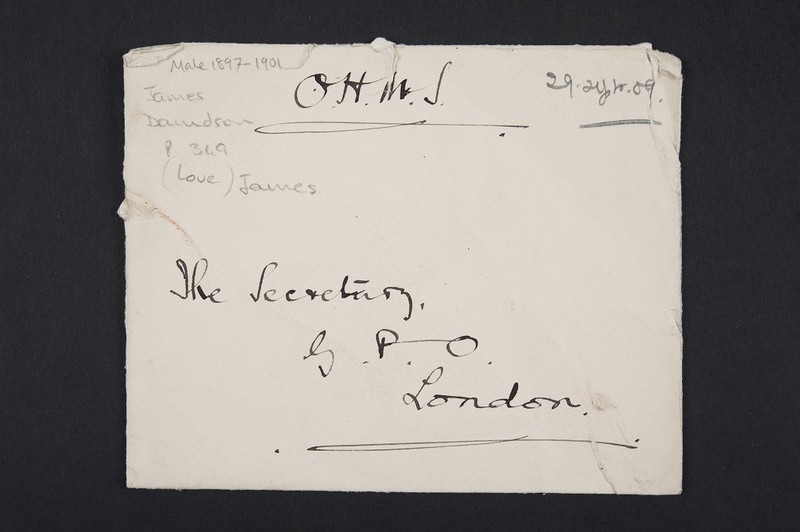 Male 1897-1901
O.H.M.S.
29. Sept. 09.
James
Davidson
P 349
(Love) James
The Secretary,
G.P.O.
London.